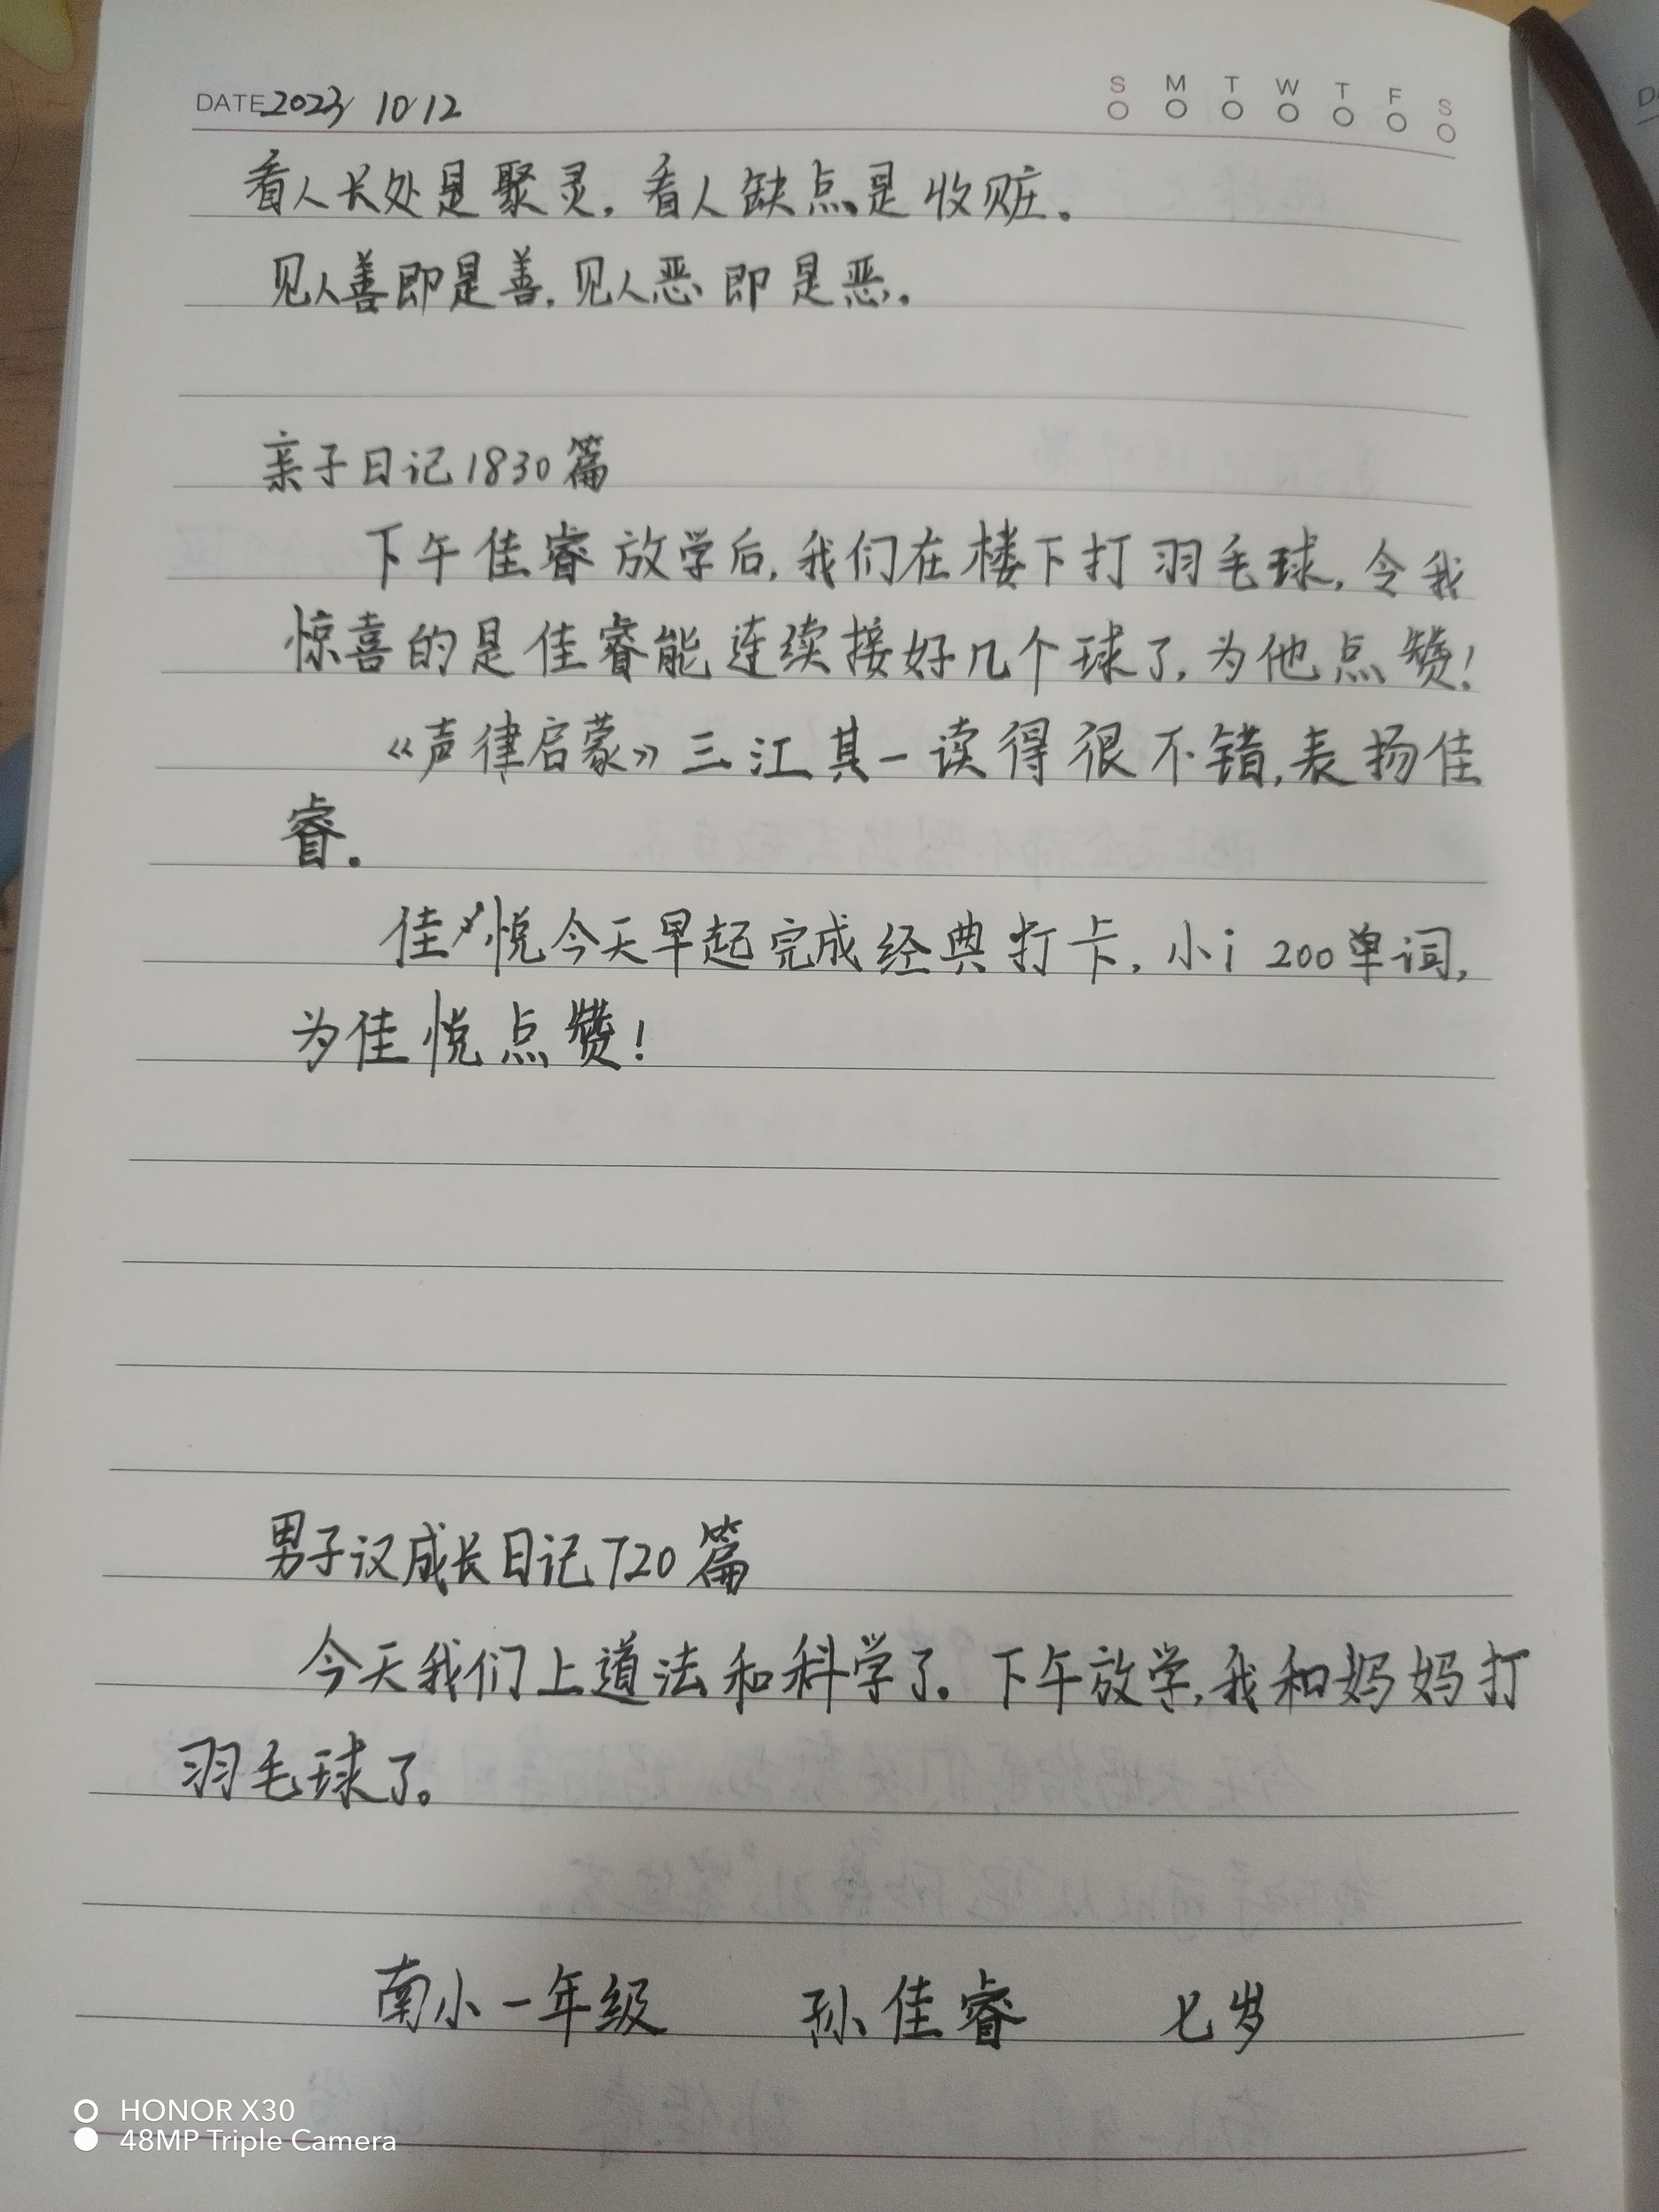 DATE 2023 10 12 S M T W T F S
看人长处是聚灵，看人缺点是收赃。
见人善即是善，见人恶即是恶。
亲子日记1830篇
下午佳睿放学后，我们在楼下打羽毛球，令我
惊喜的是佳睿能连续接好几个球了，为他点赞！
《声律启蒙》三江其一读得很不错，表扬佳
睿。
佳悦今天早起完成经典打卡，小i 200单词，
为佳悦点赞！
男子汉成长日记720篇
今天我们上道法和科学了。下午放学，我和妈妈打
羽毛球了。
南小一年级 孙佳睿 七岁
HONOR X30
48MP Triple Camera